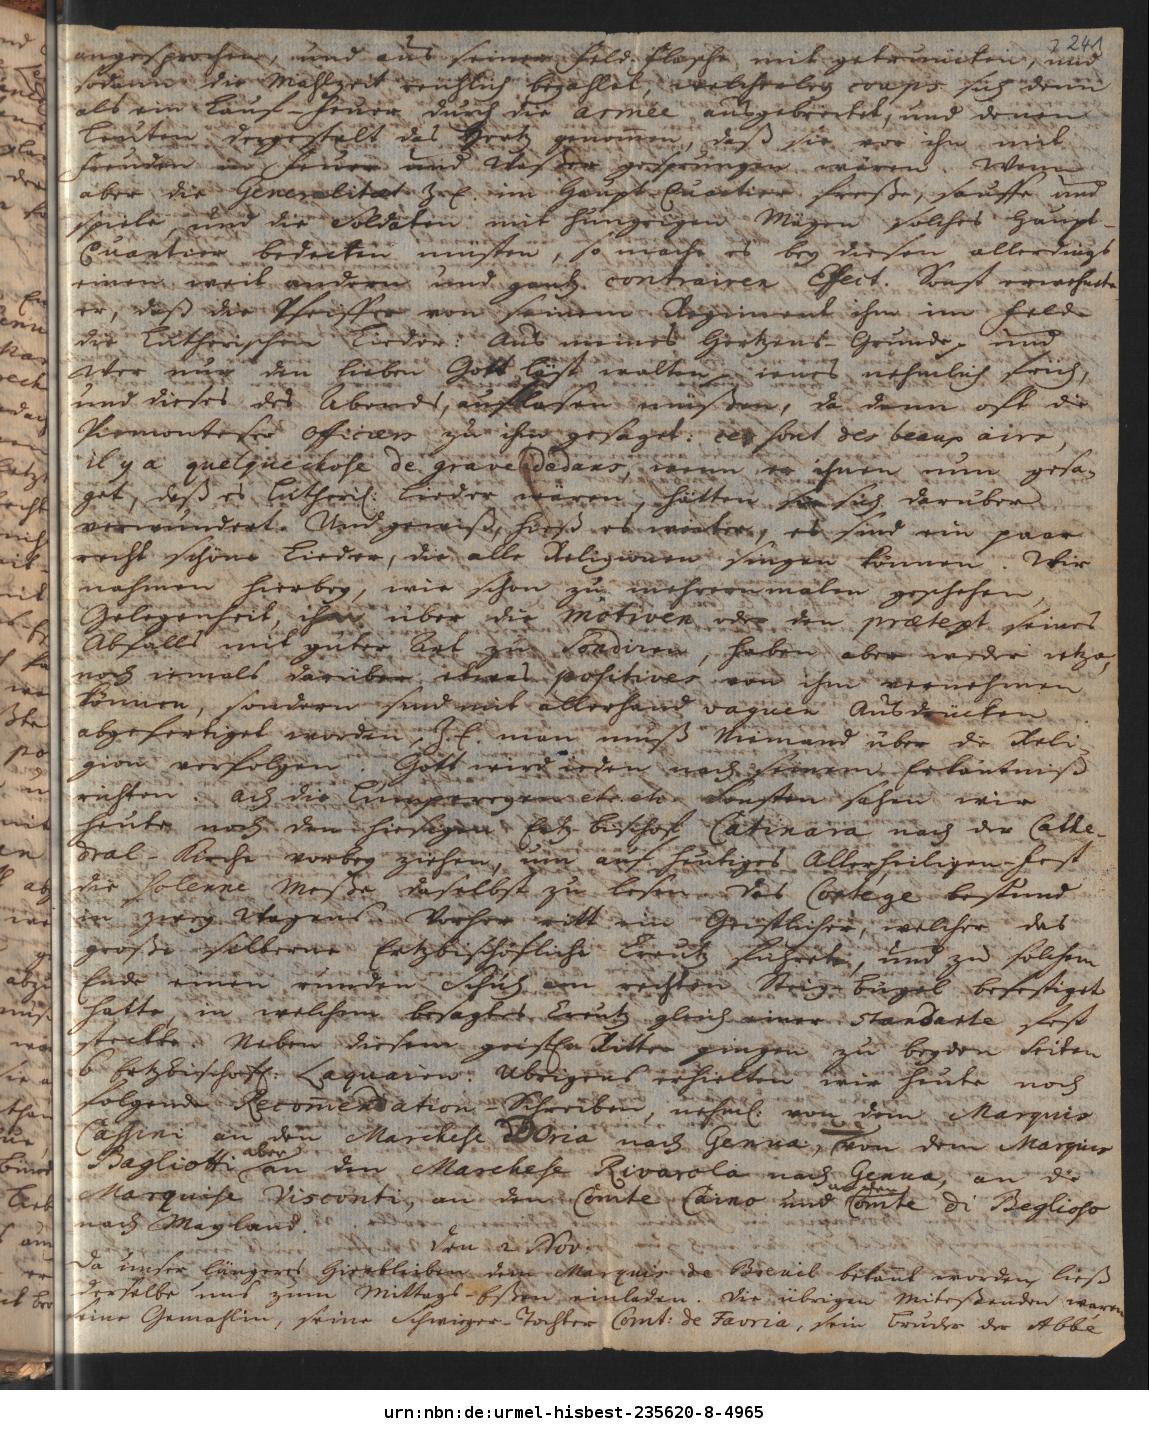 241
angesprochen, und aus seiner Feld-Flasche mit getruncken, und
sodann die Mahlzeit reichlich bezahlet, welcherley coups sich denn
als ein Lauf-Feuer durch die Armée ausgebreitet, und denen
Leuten dergestalt das Hertz genom̅en, daß sie vor ihn mit
Freuden in Feuer und Wasser gesprungen wären. Wenn
aber die Generalitæt Z. E. im Haupt-Quartier freße, sauffe und
spiele, und die Soldaten mit hungrigen Mägen solches Haupt-
Quartier bedecken müsten, so mache es bey diesen allerdings
einen weit andern und gantz contrairen Effect. Sonst erwehnte
er, daß die Pfeiffer von seinem Regiment ihm im Felde
die Lutherischen Lieder: Aus meines Hertzens-Grunde, und
Wer nur den lieben Gott läst walten, jenes nehmlich früh,
und dieses des Abends, aufblasen müßen, da denn oft die
Piemonteser Officiers zu ihm gesaget: ces sont des beaux airs,
il y a quelquechose de grave dedans, wenn er ihnen nun gesa-
get, daß es Lutheris: Lieder wären, hätten sie sich darüber
verwundert. Und gewiß, hieß es weiter, es sind ein paar
recht schöne Lieder, die alle Religionen singen können. Wir
nahmen hierbey, wie schon zu mehrernmalen geschehen,
Gelegenheit, ihn über die Motiven oder den prætext seines
Abfalls mit guter Art zu sondiren, haben aber weder itzo,
noch jemals darüber etwas positives von ihm vernehmen
können, sondern sind mit allerhand vaguen Ausdrücken
abgefertiget worden, Z. E. man muß Niemand über die Reli-
gion verfolgen. Gott wird jeden nach seinem Erkäntniß
richten. Ach die Lumpereyen etc. etc. Sonsten sahen wir
heute noch den hiesigen Ertz-Bischof Catinara nach der Cathe-
dral-Kirche vorbey ziehen, um auf heutiges Allerheiligen-Fest
die solenne Meße daselbst zu lesen. Das Cortege bestund
in zwey Wagens. Vorher ritt ein Geistlicher, welcher das
große silberne Ertzbischöfliche Creutz führete, und zu solchem
Ende einen runden Schuh am rechten Steig-bügel befestiget
hatte, in welchem besagtes Creutz gleich einer Standarte fest
steckte. Neben diesem geistln Ritter gingen zu beyden Seiten
6 Ertzbischöffl: Laquaien. Ubrigens erhielten wir heute noch
folgende Recom̅endation-Schreiben, nehml: von dem Marquis
Cassini an den Marchese Doria nach Genua, von dem Marquis
Bagliotti aber an den Marchese Rivarola nach Genua, an die
Marquise Visconti, an den Comte Cairno und an den Comte di Beglioso
nach Mayland.
Den 2 Nov.
Da unser längeres Hierbleiben dem Marquis de Breuil bekant worden, ließ
derselbe uns zum Mittags-Eßen einladen. Die übrigen Miteßenden waren
seine Gemahlin, seine Schwieger-Tochter Comt: de Favria, sein Bruder der Abbé